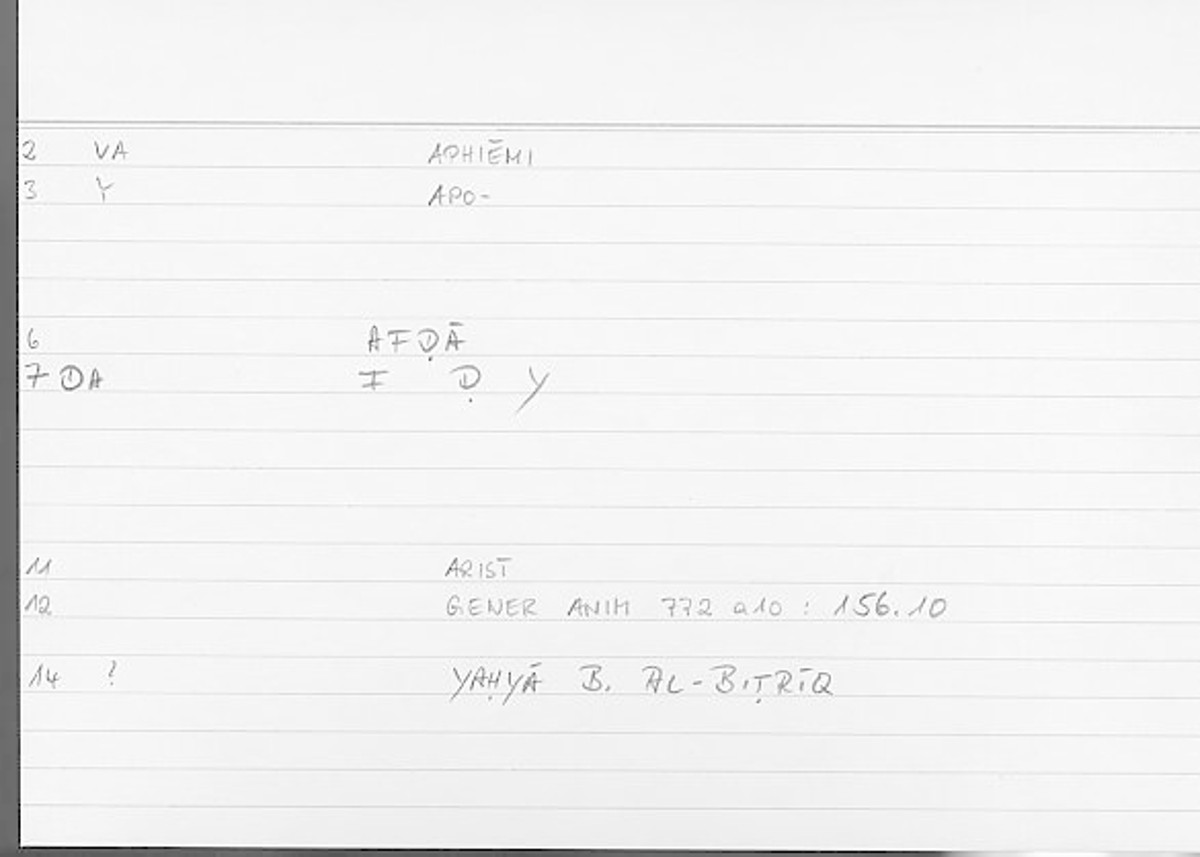 2 VA APHIĒMI
3 Y APO-
6 AFḌĀ
7 DA F Ḍ Y
11 ARIST
12 GENER ANIM 772 a10 : 156.10
14 ? YAḤYĀ B. AL-BIṬRĪQ